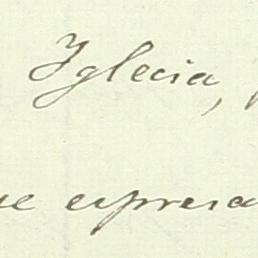 Yglecia,
ue espresa